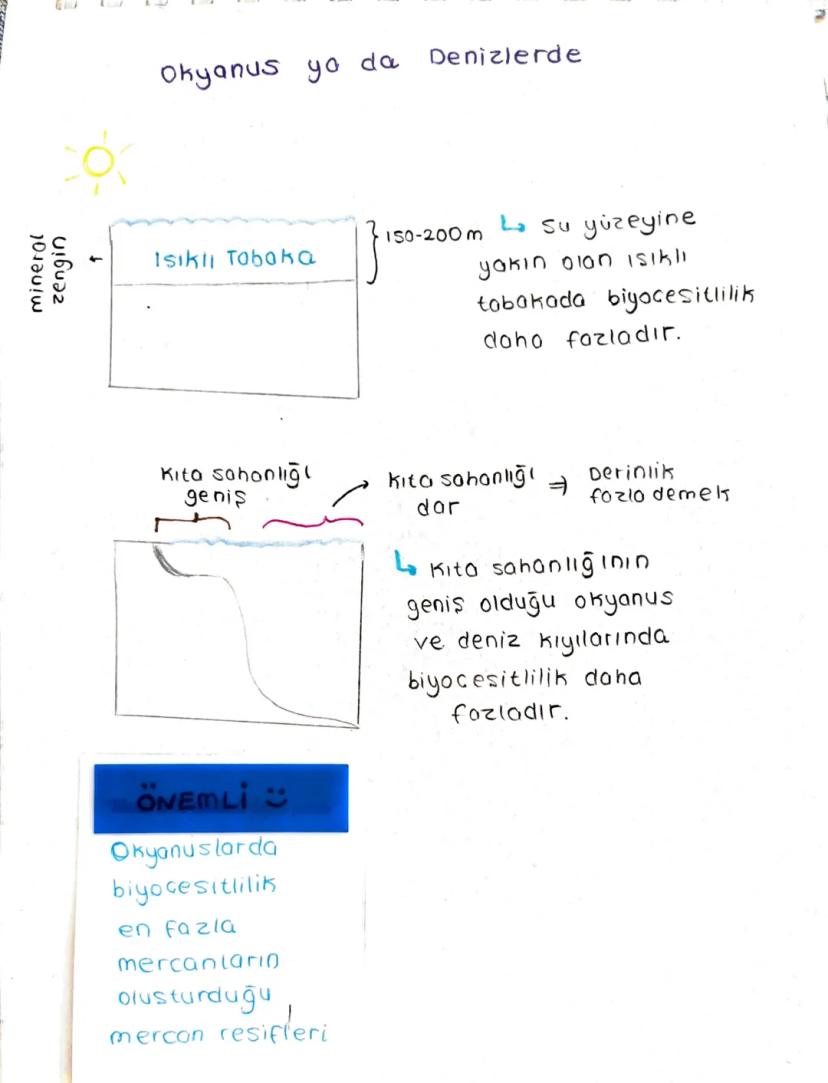 Okyanus ya da Denizlerde
mineral
zengin
Isıklı Tabaka
150-200m
↳ su yüzeyine
yakın olan ısıklı
tabakada biyocesitlilik
daha fazladır.
Kıta sahanlığı
geniş
Kıta sahanlığı
dar
⇒ Derinlik
fazla demek
↳ Kıta sahanlığının
geniş olduğu okyanus
ve deniz kıyılarında
biyocesitlilik daha
fazladır.
ÖNEMLİ
Okyanuslarda
biyocesıtlilik
en fazla
mercanların
olusturduğu
mercan resifleri